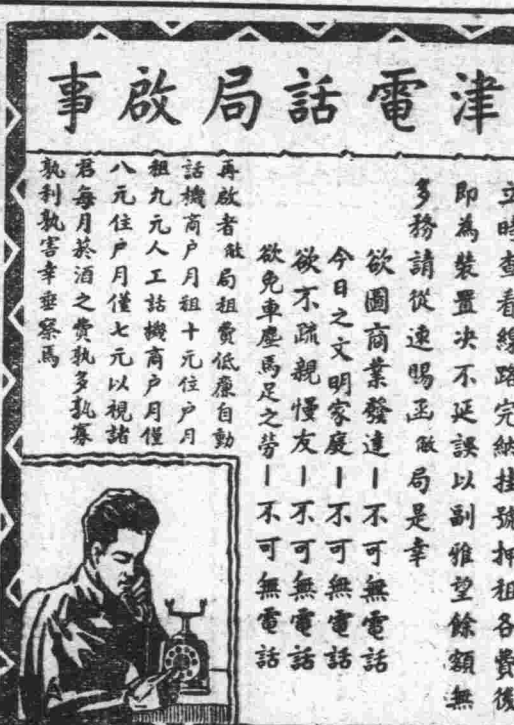 津電話局啟事
立時查看線路完納挂號押租各費後
即為裝置决不延誤以副雅望餘額無
多務請從速賜函敝局是幸
欲圖商業發達—不可無電話
今日之文明家庭—不可無電話
欲不疏親慢友—不可無電話
欲免車塵馬足之勞—不可無電話
再啟者敝局租費低廉自動
話機商户月租十元住户月
租九元人工話機商户月僅
八元住户月僅七元以視諸
君每月菸酒之費孰多孰寡
孰利孰害幸垂察焉